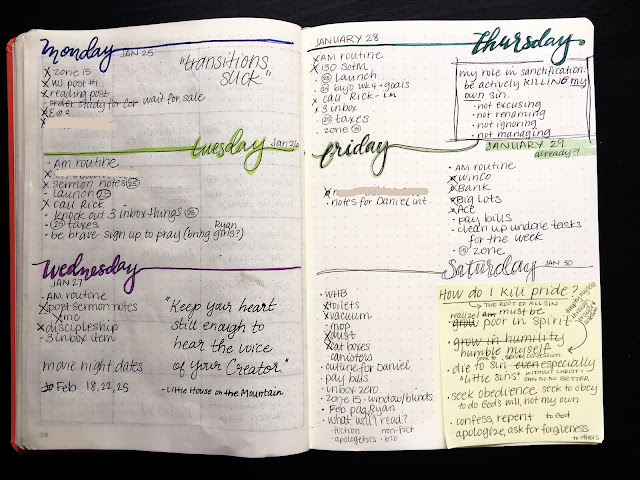 monday JAN 25
"transitions suck"
x zone 15
x WJ post #1
x reading post
order study for Cor wait for sale
x
tuesday Jan 26
· AM routine
x sermon notes (25)
· launch (27)
x call Rick
· knock out 3 inbox things (28)
· (29) taxes
Ryan
· be brave - sign up to pray (bring girls?)
Wednesday
JAN 27
· AM routine
x post sermon notes
x mc
x discipleship
· 3 inbox item
movie night dates
Feb 18, 22, 25
"Keep your heart
still enough to
hear the voice
of Your Creator."
- Little House on the Mountain
38
JANUARY 28
Thursday
x AM routine
x 130 SofM
launch
bujo wk 4 + goals
x call Rick - LM
x 3 inbox
(29) taxes
zone
my role in sanctification:
be actively KILLING my
own sin.
· not excusing
· not renaming
· not ignoring
· not managing
friday
JANUARY 29
already?!
· notes for Daniel int.
· AM routine
x WinCo
x Bank
x Big Lots
x ACE
· pay bills
· clean up undone tasks
for the week
· zone
Saturday JAN 30
· WHB
x toilets
x vacuum
· mop
x dust
x cat boxes
· canisters
· outline for Daniel
· pay bills
· inbox zero
· zone 15 - window/blinds
· Feb pag Ryan
· what will I read?
· fiction · non-fict
· apologetics · bio
How do I kill pride?
THE ROOT OF ALL SIN
realize I am must be
grow poor in spirit
grow in humility
humble myself
· die to sin even especially
"little sins" WITHOUT CHRIST I
CAN DO NO BETTER
· seek obedience, seek to obey
to do God's will, not my own
· confess, repent to God
apologize, ask for forgiveness
to others